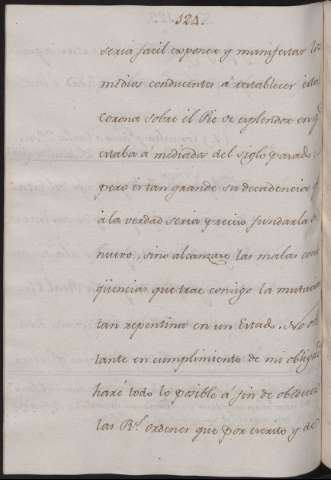 124.
seria facil exponer y manifestar los
medios conducentes á restablecer esta
Corona sobre el Pie de esplendor en q.
estaba á mediados del siglo pasado:
pero es tan grande su decadencia q.
á la verdad seria preciso fundarla de
nuevo, sino alcanzare las malas conse
qüencias que trae consigo la mutacion
tan repentina en un Estado. No obs
tante en cumplimiento de mi obligac.
haré todo lo posible á fin de obedecer
las R.s ordenes que por escrito y de